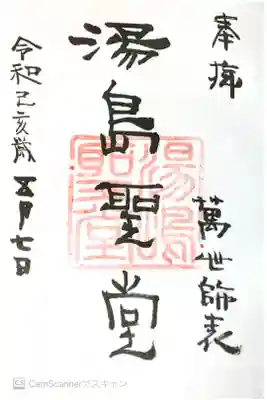 奉拝
萬世師表
湯島聖堂
湯島聖堂
令和己亥歳 五月七日
CS CamScannerでスキャン